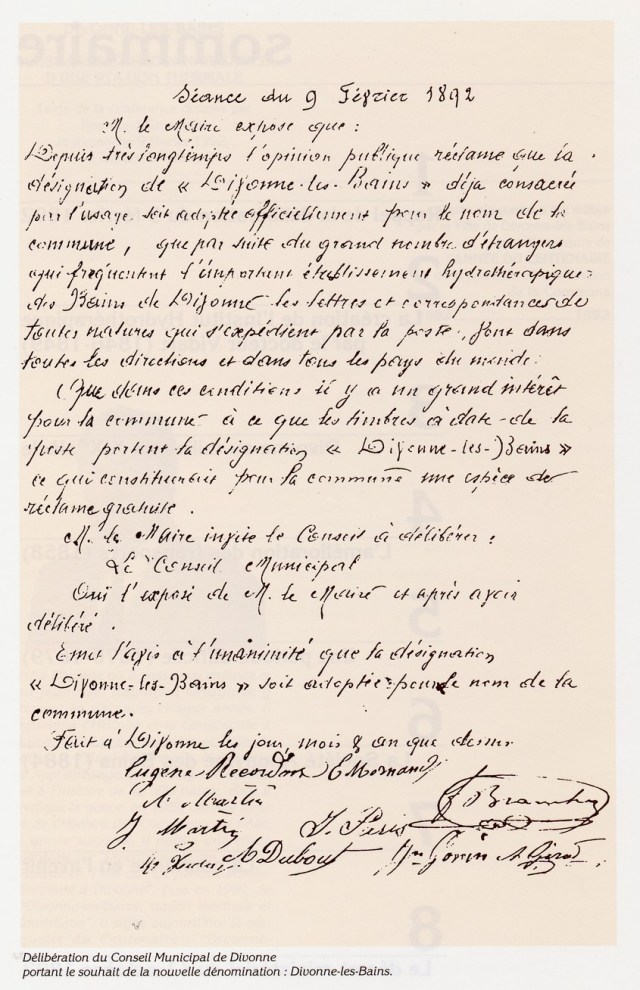 Séance du 9 Février 1892
M. le Maire expose que :
Depuis très longtemps l'opinion publique réclame que la
désignation de « Divonne-les-Bains » déja consacrée
par l'usage soit adoptée officiellement pour le nom de la
commune, que par suite du grand nombre d'étrangers
qui fréquentent l'important établissement hydrothérapique
des Bains de Divonne les lettres et correspondances de
toutes natures qui s'expédient par la poste, vont dans
toutes les directions et dans tous les pays du monde.
Que dans ces conditions il y a un grand intérêt
pour la commune à ce que les timbres à date de la
poste portent la désignation « Divonne-les-Bains »
ce qui constituerait pour la commune une espèce de
réclame gratuite.
M. le Maire invite le Conseil à délibérer :
Le Conseil Municipal
Oui l'exposé de M. le Maire et après avoir
délibéré.
Emet l'avis à l'unanimité que la désignation
« Divonne-les-Bains » soit adoptée pour le nom de la
commune.
Fait à Divonne les jour, mois & an que dessus
Eugène Recordon E Mornand
A. Martin
J Martin J. Péris
A Dubout Gonin A Girod
Délibération du Conseil Municipal de Divonne
portant le souhait de la nouvelle dénomination : Divonne-les-Bains.